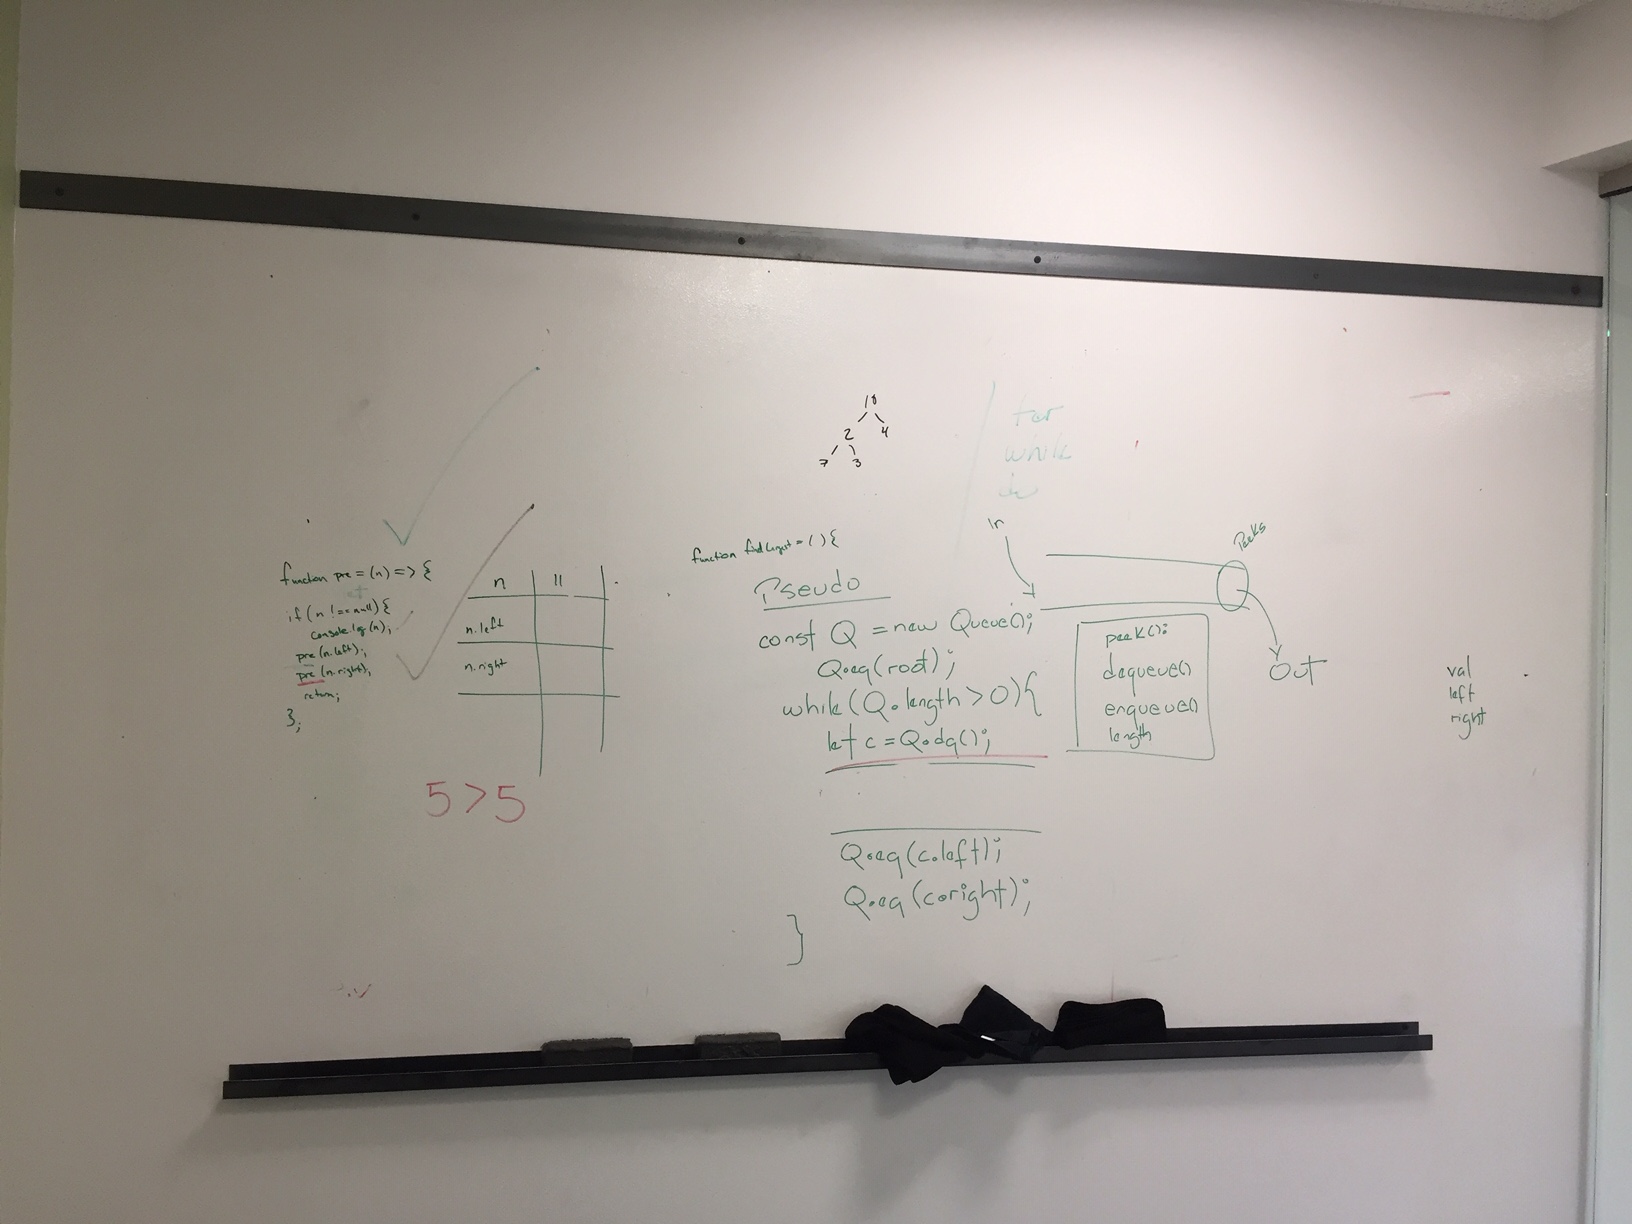 function pre = (n) => {
if (n !== null) {
console.log(n);
pre (n.left);
pre (n.right);
return;
};
n 11
n.left
n.right
5 > 5
18
2 4
7 3
for
while
do
function findLargest = () {
Pseudo
const Q = new Queue();
Q.eq(root);
while (Q.length > 0) {
let c = Q.dq();
Q.eq(c.left);
Q.eq(c.right);
}
In
Peeks
Out
peek():
dequeue()
enqueue()
length
val
left
right